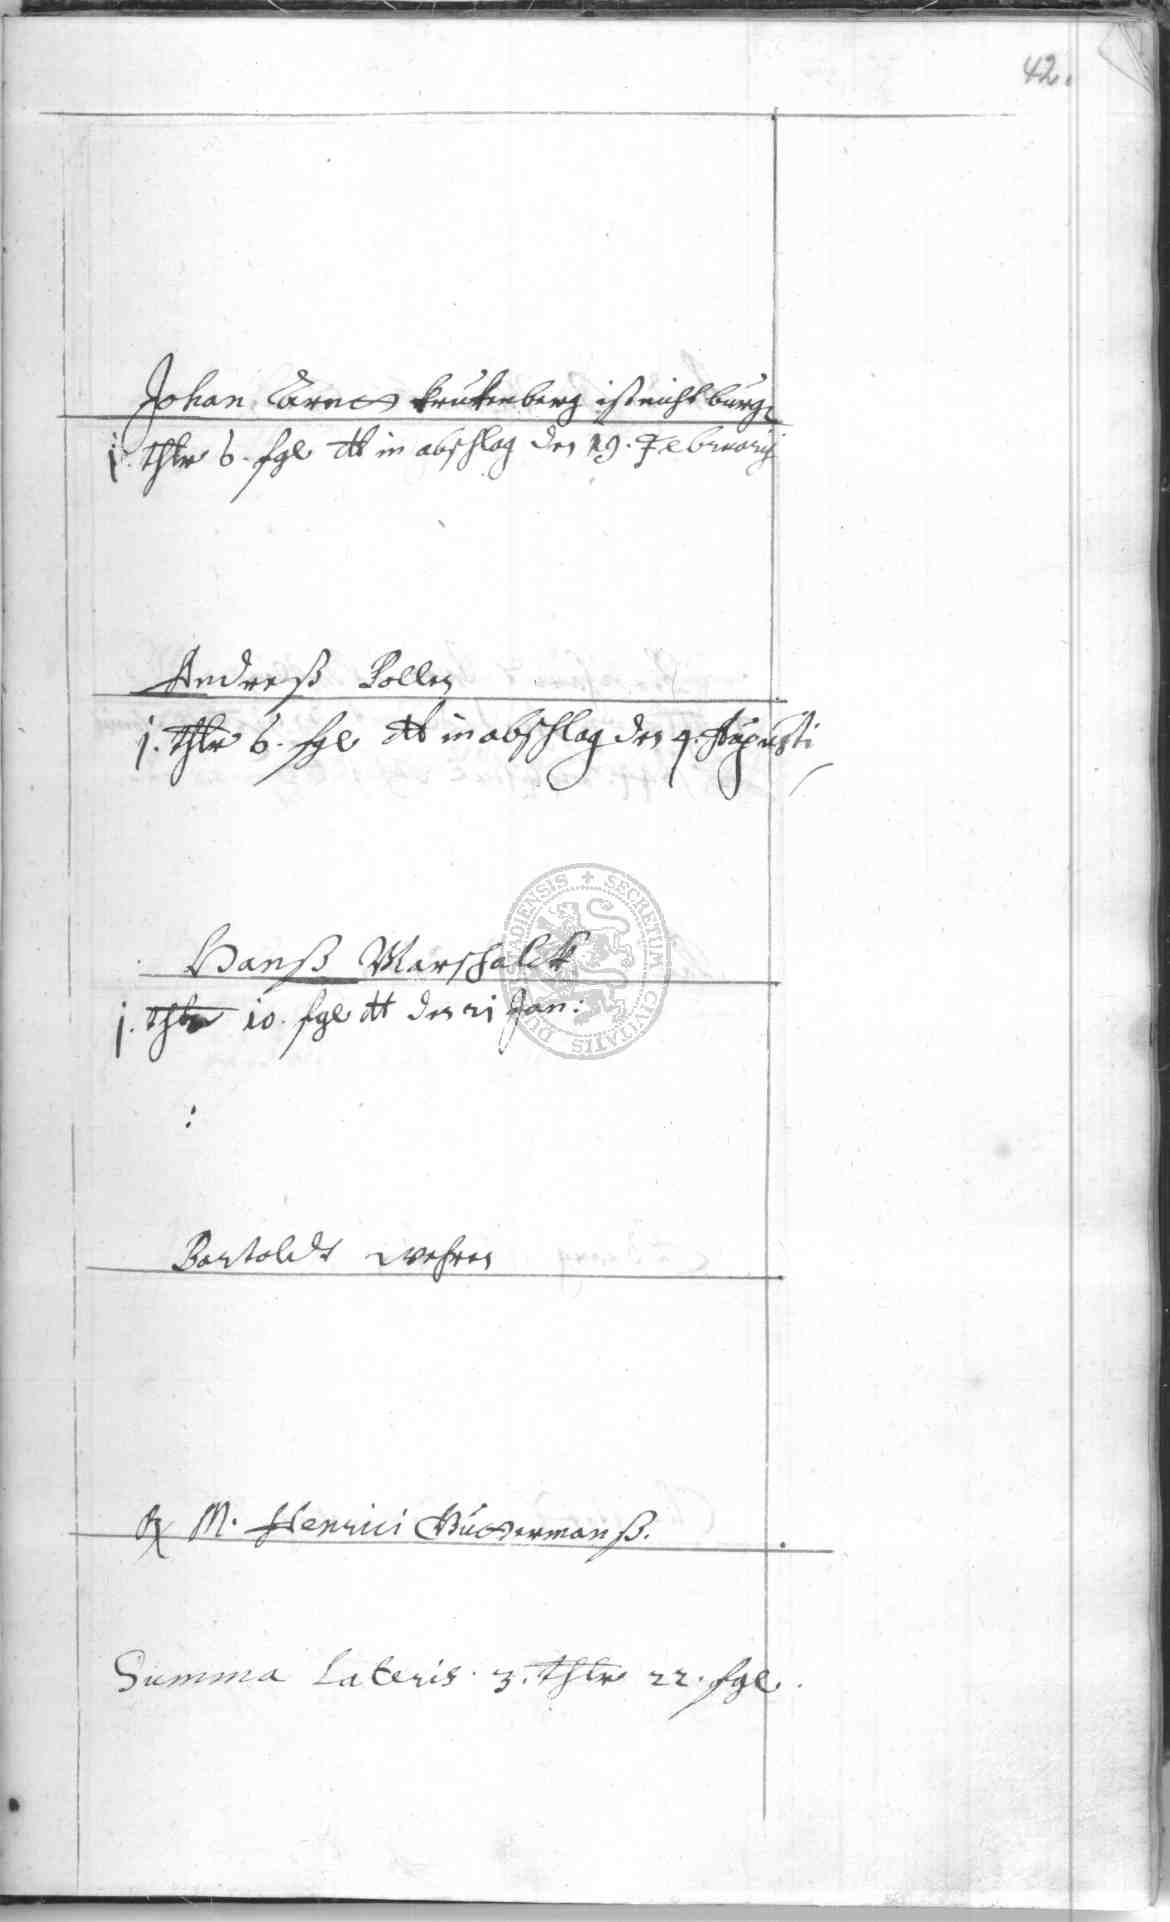 42.
Johan Krukenberg ist nicht burg
j. thlr 6. fgl dt in abschlag den 29. Februarij
Andreß Bollen
j. thlr 6. fgl dt in abschlag den 4. Augusti
Hanß Marschalck
j. thlr 10. fgl dt den 21 Jan:
Bartoldt Wehren
M. Henrici
Summa Lateris 3. thlr 22. fgl.
SECRETUM CIVITATIS